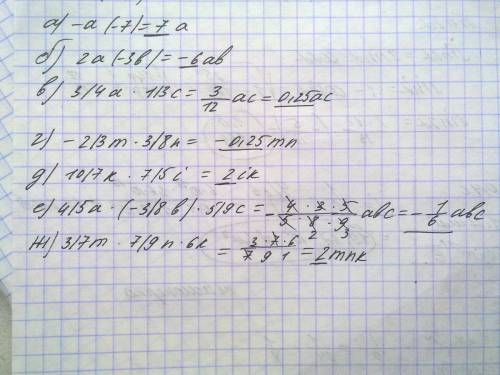 а) -a (-7)=7 a
б) 2a (-3в)= -6ab
в) 3/4a · 1/3c = 3/12 ac = 0,25ac
г) - 2/3m · 3/8n = -0,25mn
д) 10/7k · 7/5i = 2ik
е) 4/5a · (-3/8b) · 5/9c = - 4 · 3 · 5 / 5 · 8 · 9 abc = - 1/6 abc
2 3
ж) 3/7m · 7/9n · 6k = 3 · 7 · 6 / 7 9 1 = 2mnk